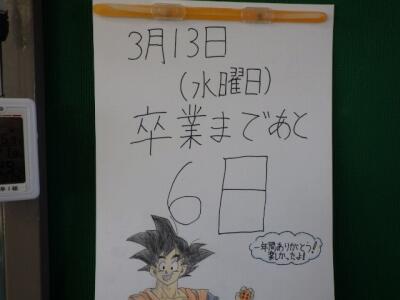 3月13日
(水曜日)
卒業まであと
6日
一年間ありがとう!
楽しかったよ!